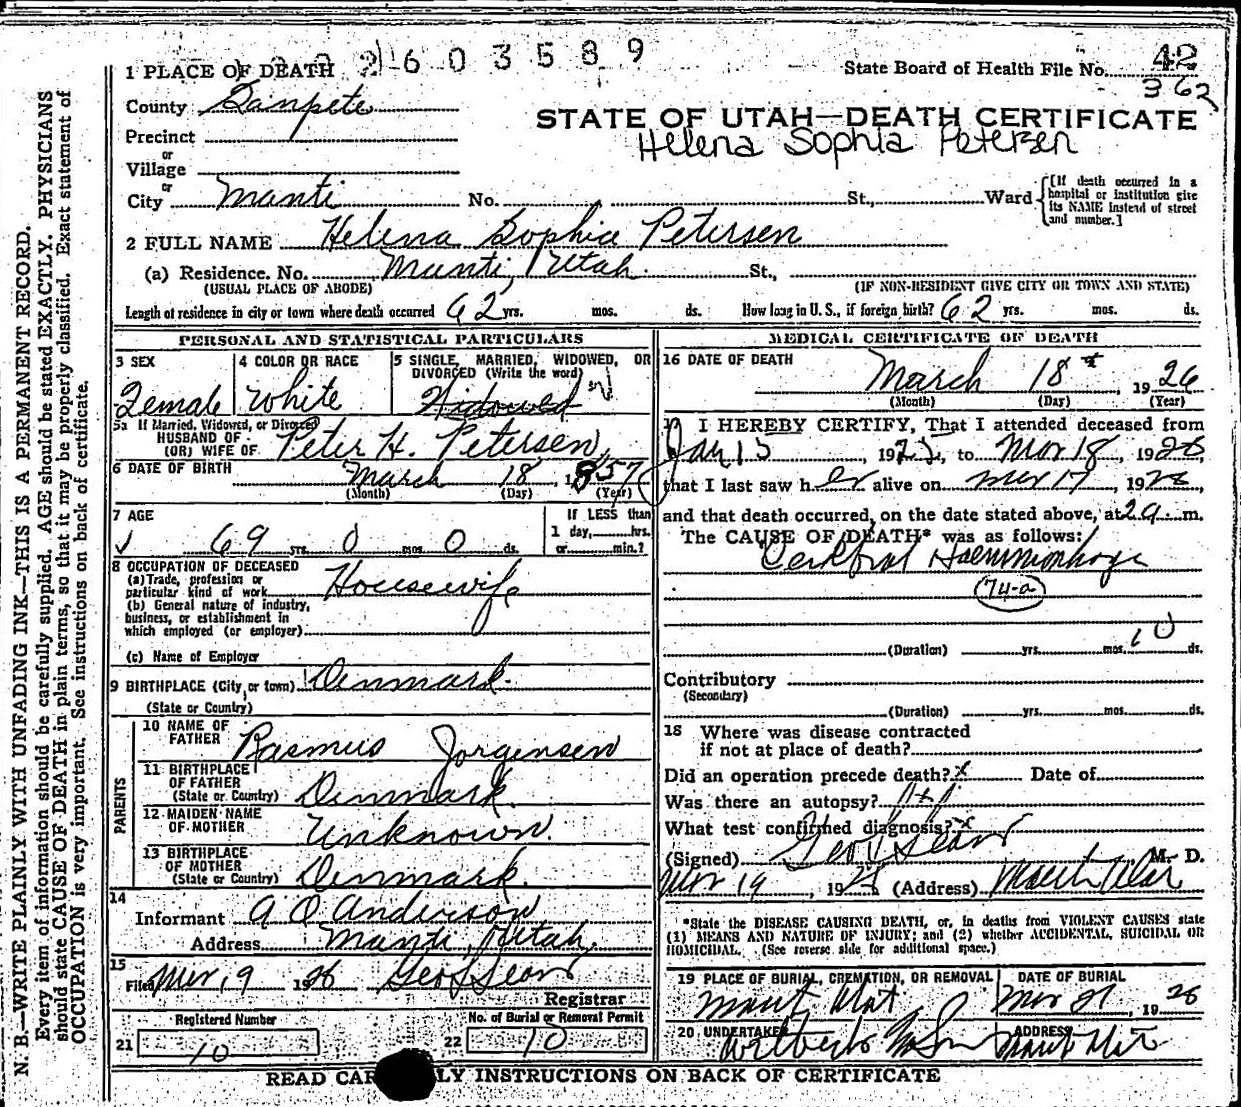 2603589
1 PLACE OF DEATH
State Board of Health File No. 42
362
County Sanpete
STATE OF UTAH—DEATH CERTIFICATE
Helena Sophia Petersen
Precinct
or
Village
or
City Manti No. St., Ward
[If death occurred in a hospital or institution give its NAME instead of street and number.]
2 FULL NAME Helena Sophia Petersen
(a) Residence. No. Manti, Utah. St.,
(USUAL PLACE OF ABODE) (IF NON-RESIDENT GIVE CITY OR TOWN AND STATE)
Length of residence in city or town where death occurred 62 yrs. mos. ds. How long in U. S., if foreign birth? 62 yrs. mos. ds.
PERSONAL AND STATISTICAL PARTICULARS
3 SEX 4 COLOR OR RACE 5 SINGLE, MARRIED, WIDOWED, OR
DIVORCED (Write the word)
Female White Widowed
5a If Married, Widowed, or Divorced
HUSBAND OF
(OR) WIFE OF Peter H. Petersen
6 DATE OF BIRTH March 18, 1857
(Month) (Day) (Year)
7 AGE If LESS than
1 day, hrs.
69 yrs. 0 mos. 0 ds. or min.?
8 OCCUPATION OF DECEASED
(a) Trade, profession or
particular kind of work Housewife
(b) General nature of industry,
business, or establishment in
which employed (or employer)
(c) Name of Employer
9 BIRTHPLACE (City or town) Denmark.
(State or Country)
PARENTS
10 NAME OF
FATHER Rasmus Jorgensen
11 BIRTHPLACE
OF FATHER
(State or Country) Denmark.
12 MAIDEN NAME
OF MOTHER Unknown.
13 BIRTHPLACE
OF MOTHER
(State or Country) Denmark.
14
Informant A O Anderson
Address Manti, Utah,
15
Filed Mar 19 1926 Geo L Sears
Registrar
Registered Number No. of Burial or Removal Permit
21 10 22 10
MEDICAL CERTIFICATE OF DEATH
16 DATE OF DEATH
March 18 1926
(Month) (Day) (Year)
17 I HEREBY CERTIFY, That I attended deceased from
Jan 15, 192, to Mar 18, 1926
that I last saw her alive on Mar 17, 1926,
and that death occurred, on the date stated above, at 2 a. m.
The CAUSE OF DEATH* was as follows:
Cerebral Haemmorhage
74-a
(Duration) yrs. mos. 10 ds.
Contributory
(Secondary)
(Duration) yrs. mos. ds.
18 Where was disease contracted
if not at place of death?
Did an operation precede death? x Date of
Was there an autopsy?
What test confirmed diagnosis? x
(Signed) Geo L Sears M. D.
Mar 19, 1926 (Address) Manti Utah
*State the DISEASE CAUSING DEATH, or, in deaths from VIOLENT CAUSES state
(1) MEANS AND NATURE OF INJURY; and (2) whether ACCIDENTAL, SUICIDAL OR
HOMICIDAL. (See reverse side for additional space.)
19 PLACE OF BURIAL, CREMATION, OR REMOVAL DATE OF BURIAL
Manti Utah Mar 21, 1926
20 UNDERTAKER ADDRESS
Manti
READ CAR LY INSTRUCTIONS ON BACK OF CERTIFICATE
N. B.—WRITE PLAINLY WITH UNFADING INK—THIS IS A PERMANENT RECORD.
Every item of information should be carefully supplied. AGE should be stated EXACTLY. PHYSICIANS
should state CAUSE OF DEATH in plain terms, so that it may be properly classified. Exact statement of
OCCUPATION is very important. See instructions on back of certificate.